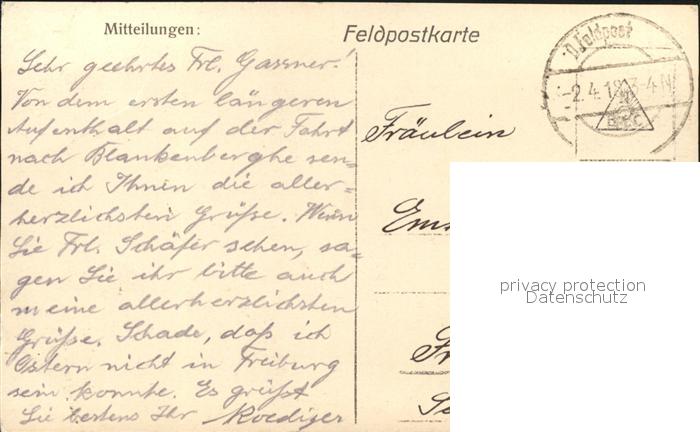 Mitteilungen:
Feldpostkarte
Sehr geehrtes Frl. Gassner!
Von dem ersten längeren
Aufenthalt auf der Fahrt
nach Blankenberghe sen-
de ich Ihnen die aller-
herzlichsten Grüße. Wenn
Sie Frl. Schäfer sehen, sa-
gen Sie ihr bitte auch
meine allerherzlichsten
Grüße. Schade, daß ich
Ostern nicht in Freiburg
sein konnte. Es grüßt
Sie bestens Ihr Roediger
Feldpost
-2.4.18.3-4N
Fräulein
privacy protection
Datenschutz